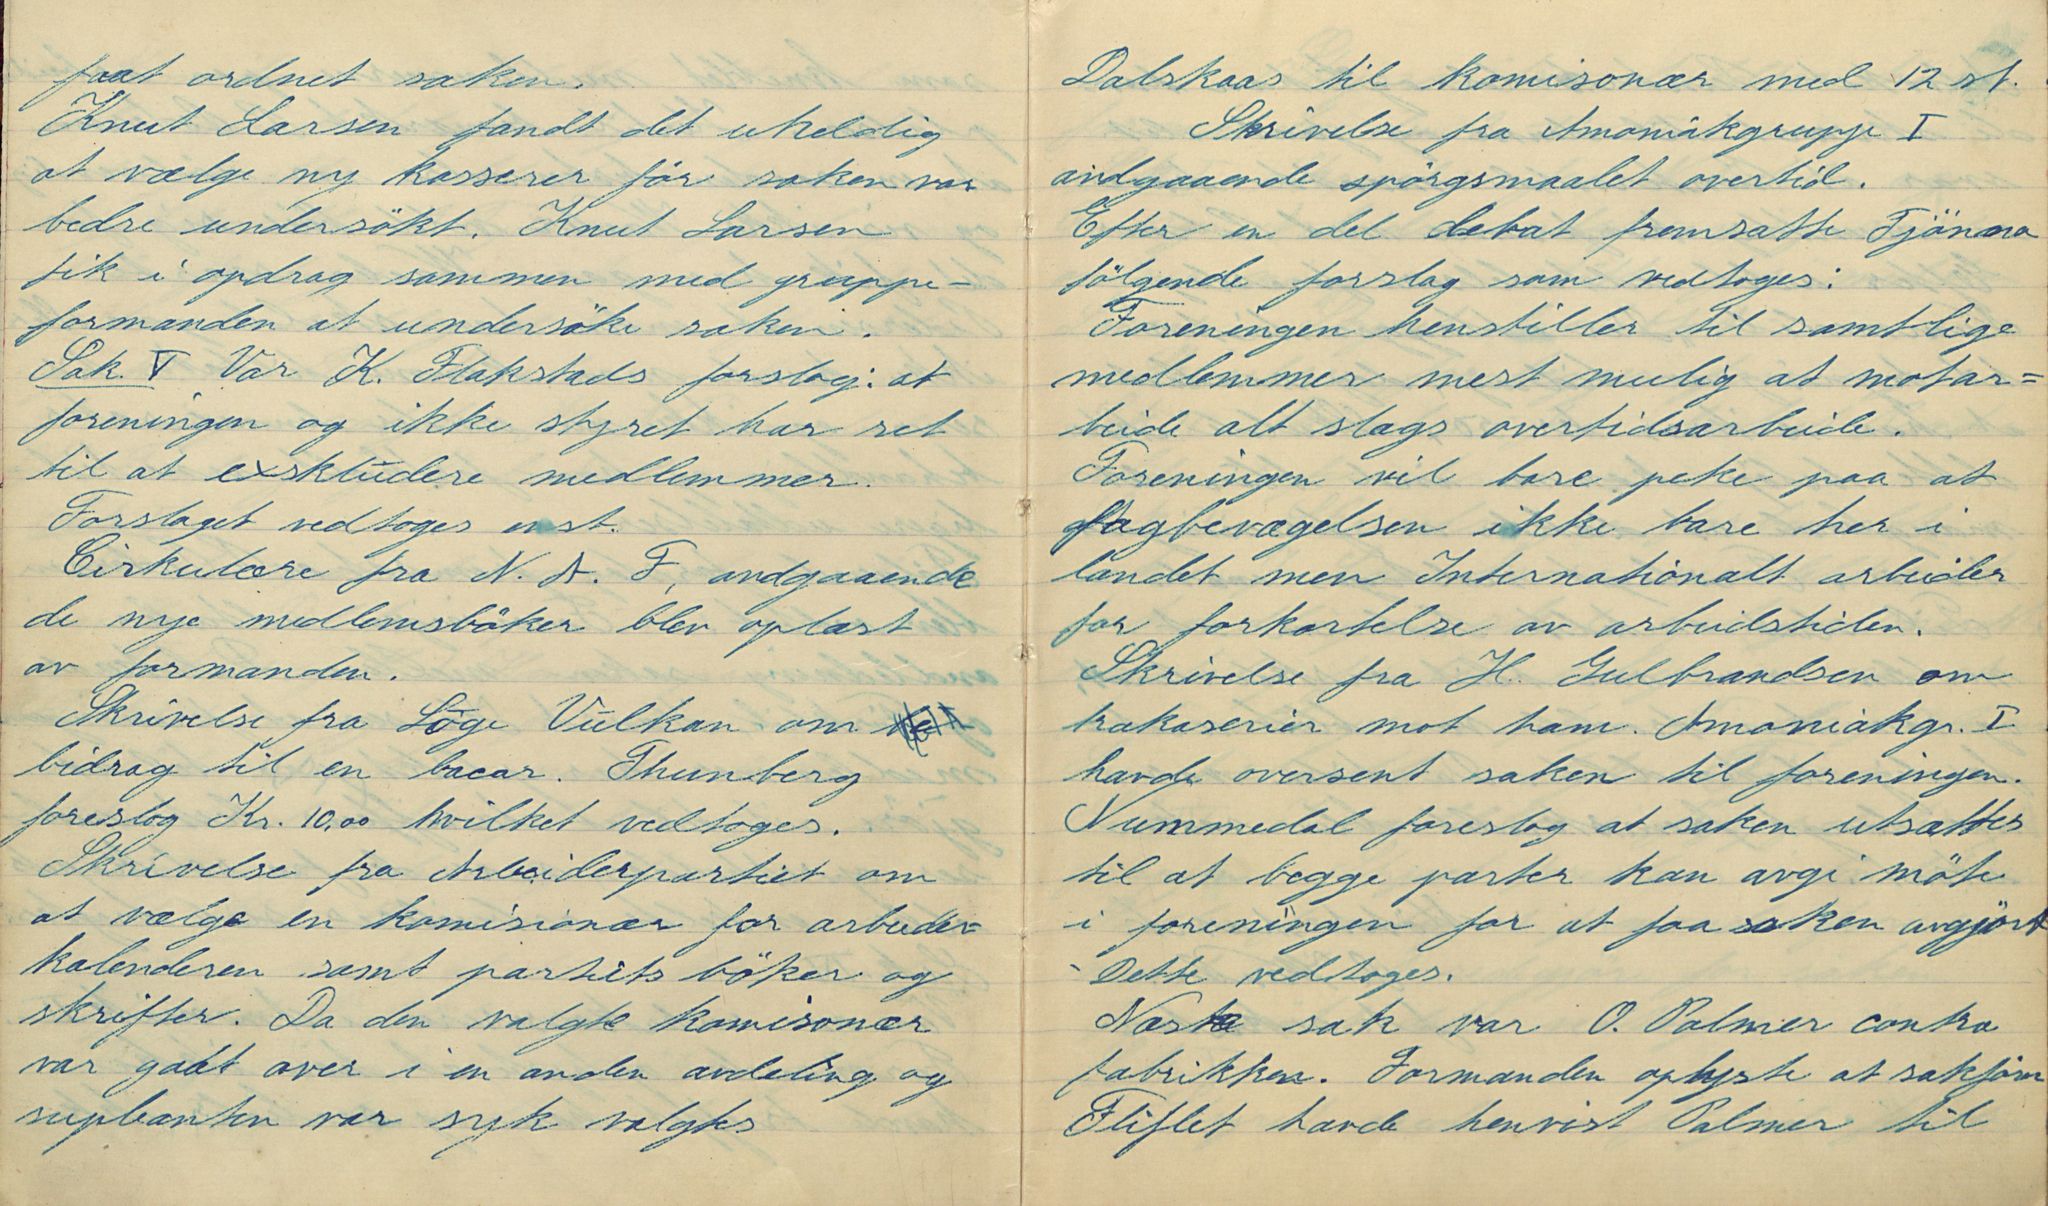 faat ordnet saken.
Knut Larsen fandt det uheldig
at vælge ny kasserer før saken var
bedre undersökt. Knut Larsen
fik i opdrag sammen med gruppe-
formanden at undersöke saken.
Sak V Var K. Flakstads forslag: at
foreningen og ikke styret har ret
til at exskludere medlemmer.
Forslaget vedtoges enst.
Cirkulære fra N. A. F, andgaaende
de nye medlemsböker blev oplæst
av formanden.
Skrivelse fra Löge Vulkan om
bidrag til en bacar. Thunberg
foreslog Kr. 10,00 hvilket vedtoges.
Skrivelse fra Arbeiderpartiet om
at vælge en komisionær for arbeider=
kalenderen samt partiets böker og
skrifter. Da den valgte komisonær
var gaat over i en anden avdeling og
supleanten var syk valgtes
Dalskaas til komisonær med 12 st.
Skrivelse fra Amoniakgruppe I
andgaaende spörgsmaalet overtid.
Efter en del debat fremsatte Tjönna
fölgende forslag som vedtoges:
Foreningen henstiller til samtlige
medlemmer mest mulig at motar=
beide alt slags overtidsarbeide.
Foreningen vil bare peke paa at
fagbevægelsen ikke bare her i
landet men Internationalt arbeider
for forkortelse av arbeidstiden.
Skrivelse fra H. Gulbrandsen om
trakaserier mot ham. Amoniakgr. I
havde oversent saken til foreningen.
Nummedal foreslog at saken utsættes
til at begge parter kan avgi möte
i foreningen for at faa saken avgjört
- Dette vedtoges.
Næste sak var O. Palmer contra
fabrikken. Formanden oplyste at sakförer
Fliflet havde henvist Palmer til